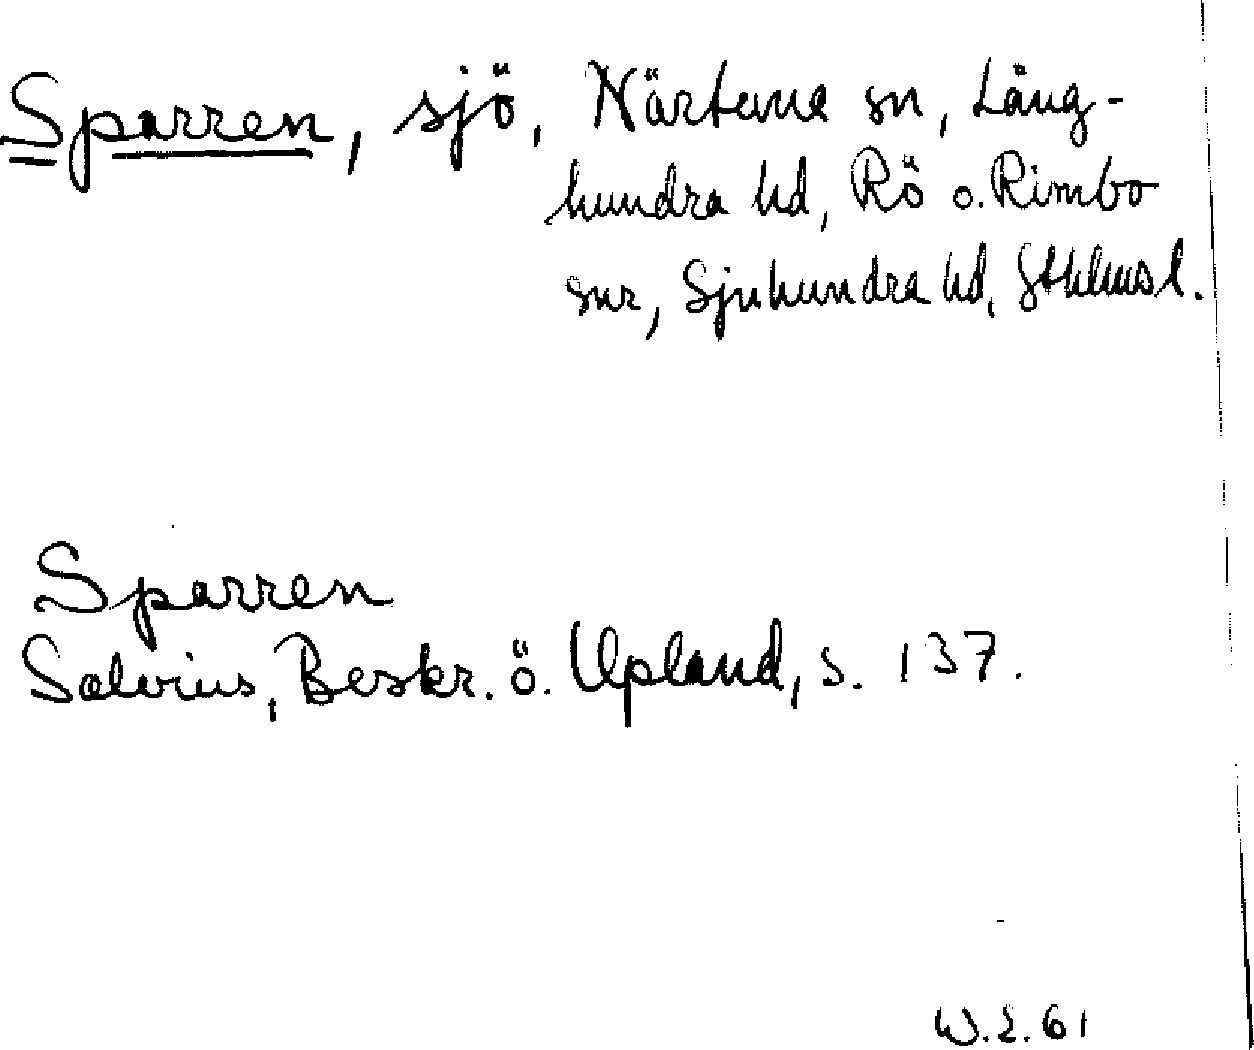 Sparren, sjö, Närtuna sn, Lång-
hundra hd, Rö o. Rimbo
snr, Sjuhundra hd, Sthlms l.
Sparren
Salvius, Beskr. ö. Upland, s. 137.
W.E. 61